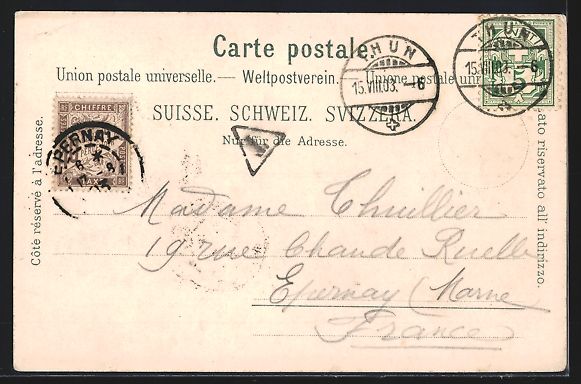 Carte postale.
Union postale universelle. — Weltpostverein. — Unione postale
SUISSE. SCHWEIZ. SVIZZERA.
Nur für die Adresse.
Côté réservé à l'adresse.
riservato all' indirizzo.
THUN
15.VIII.03. – 6
THUN
15.VIII.03.
CHIFFRE
TAXE
EPERNAY
T
Madame Thuillier
19 rue Chaude Ruelle
Epernay (Marne
France